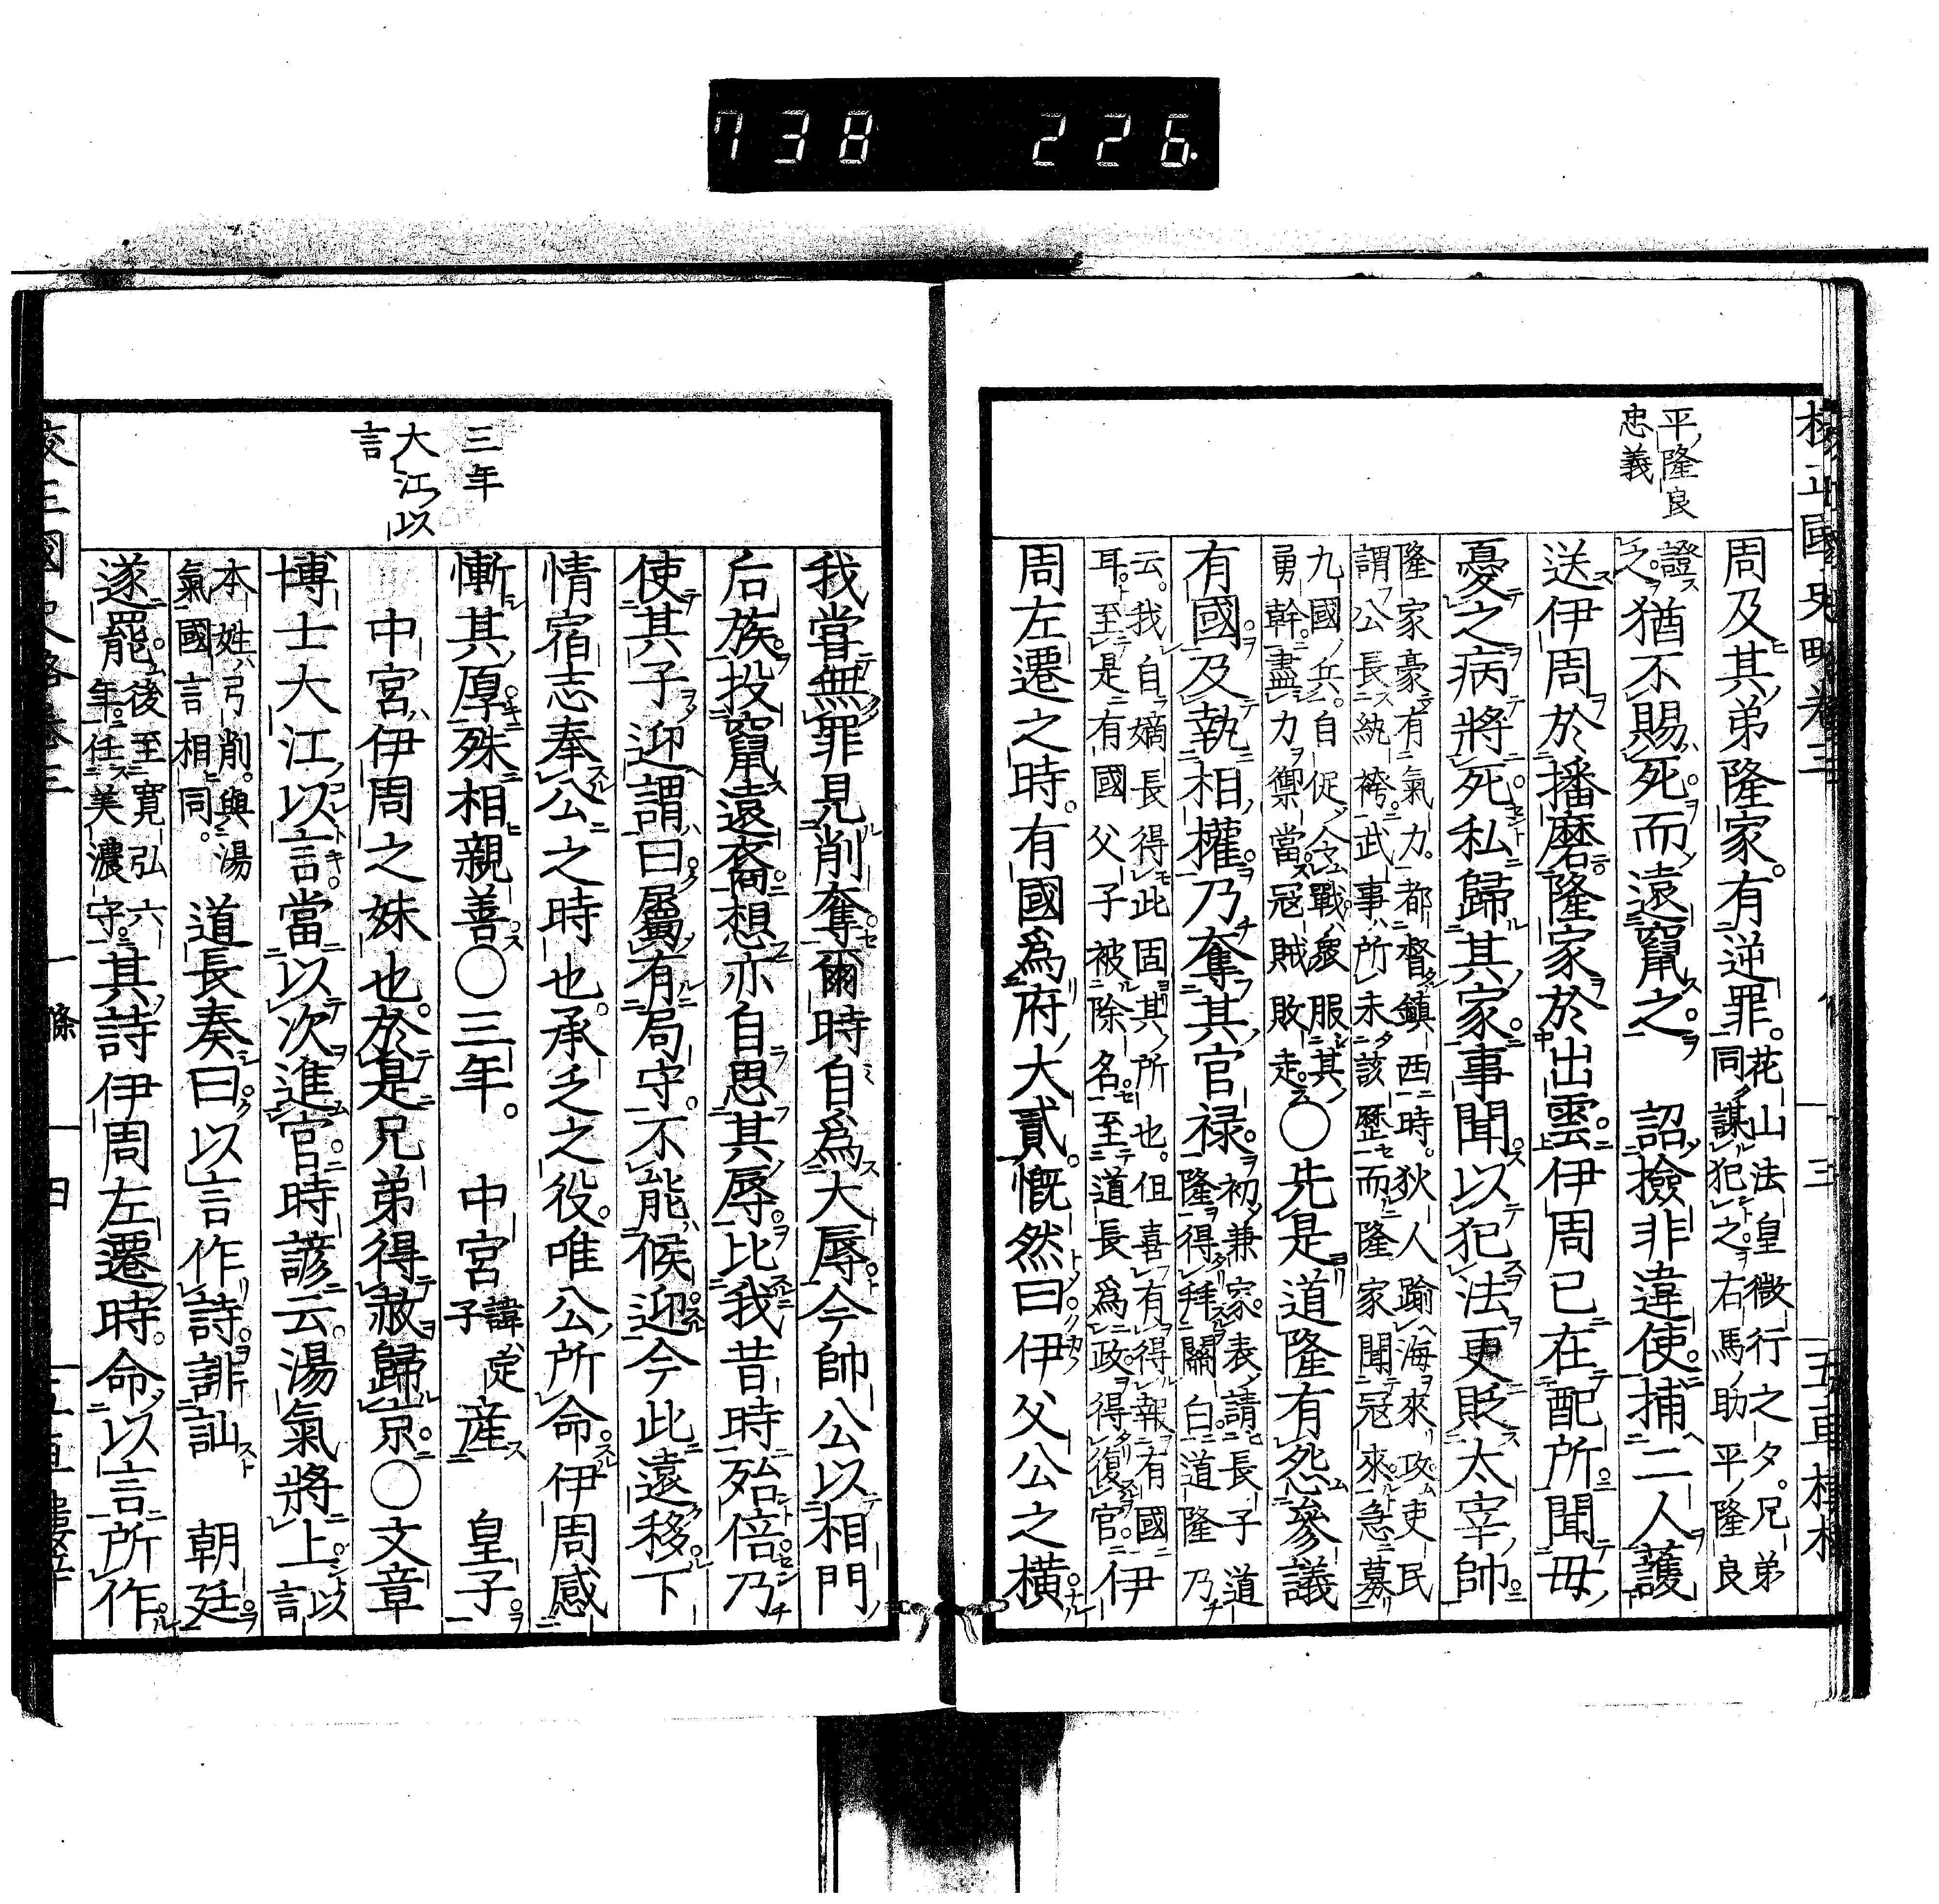 738 226.
平隆良
忠義
周及其弟隆家。有逆罪。花山法皇微行之夕。兄弟
同謀犯之。右馬助平隆良
證
之。猶不賜死。而遠竄之。詔撿非違使。捕二人護
送伊周於播磨。隆家於出雲。伊周已在配所。聞母
憂之病將死。私歸其家。事聞。以犯法更貶太宰帥。
隆家豪有氣力。都督鎮西時。狄人踰海來攻。吏民
謂公長紈袴。武事所未該歷。而隆家聞冦來。急募
九國兵。自促令戰。衆服其
勇幹。盡力禦當。冦賊敗走。〇先是道隆有怨參議
有國。及執相權。乃奪其官禄。初兼家表請長子道
隆得拜關白。道隆乃
云。我自嫡長得此固其所也。但喜有得報有國
耳。至是有國父子被除名。至道長爲政。得復官。伊
周左遷之時。有國爲府大貳。慨然曰。伊父公之橫
三年
大江以
言
我嘗無罪見削奪。爾時自爲大辱。今帥公以相門
后族。投竄遠裔。想亦自思其辱。比我昔時殆倍。乃
使其子迎謂曰。屬有局守。不能候迎。今此遠移下
情宿志奉公之時也。承乏之役。唯公所命。伊周感
慚其厚。殊相親善。〇三年。中宮諱定
子産皇子。
中宮伊周之妹也。於是兄弟得赦歸京。〇文章
博士大江以言當以次進官。時諺云。湯氣將上。以
言
本姓弓削。與湯
氣國言相同。道長奏曰。以言作詩。誹訕朝廷。
遂罷。後至寛弘六
年。任美濃守。其詩伊周左遷時。命以言所作